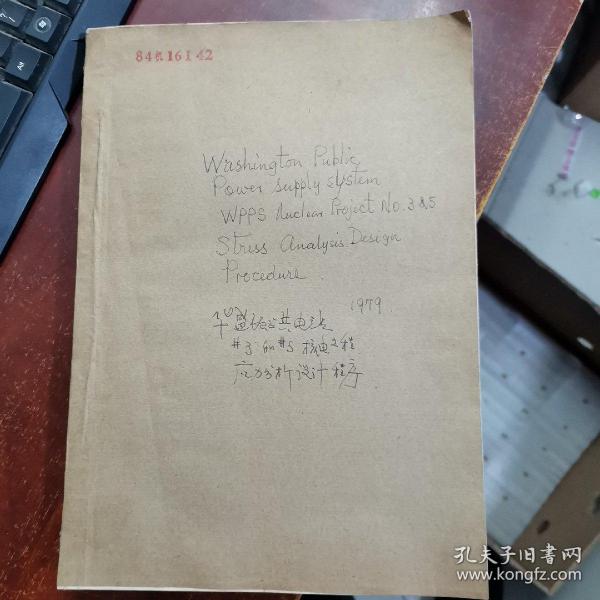 84机16142
Washington Public
Power supply system
WPPS Nuclear Project No. 3&5
Stress Analysis Design
Procedure.
1979
华盛顿公共电站
#3和#5核电工程
应力分析设计程序
孔夫子旧书网
www.kongfz.com